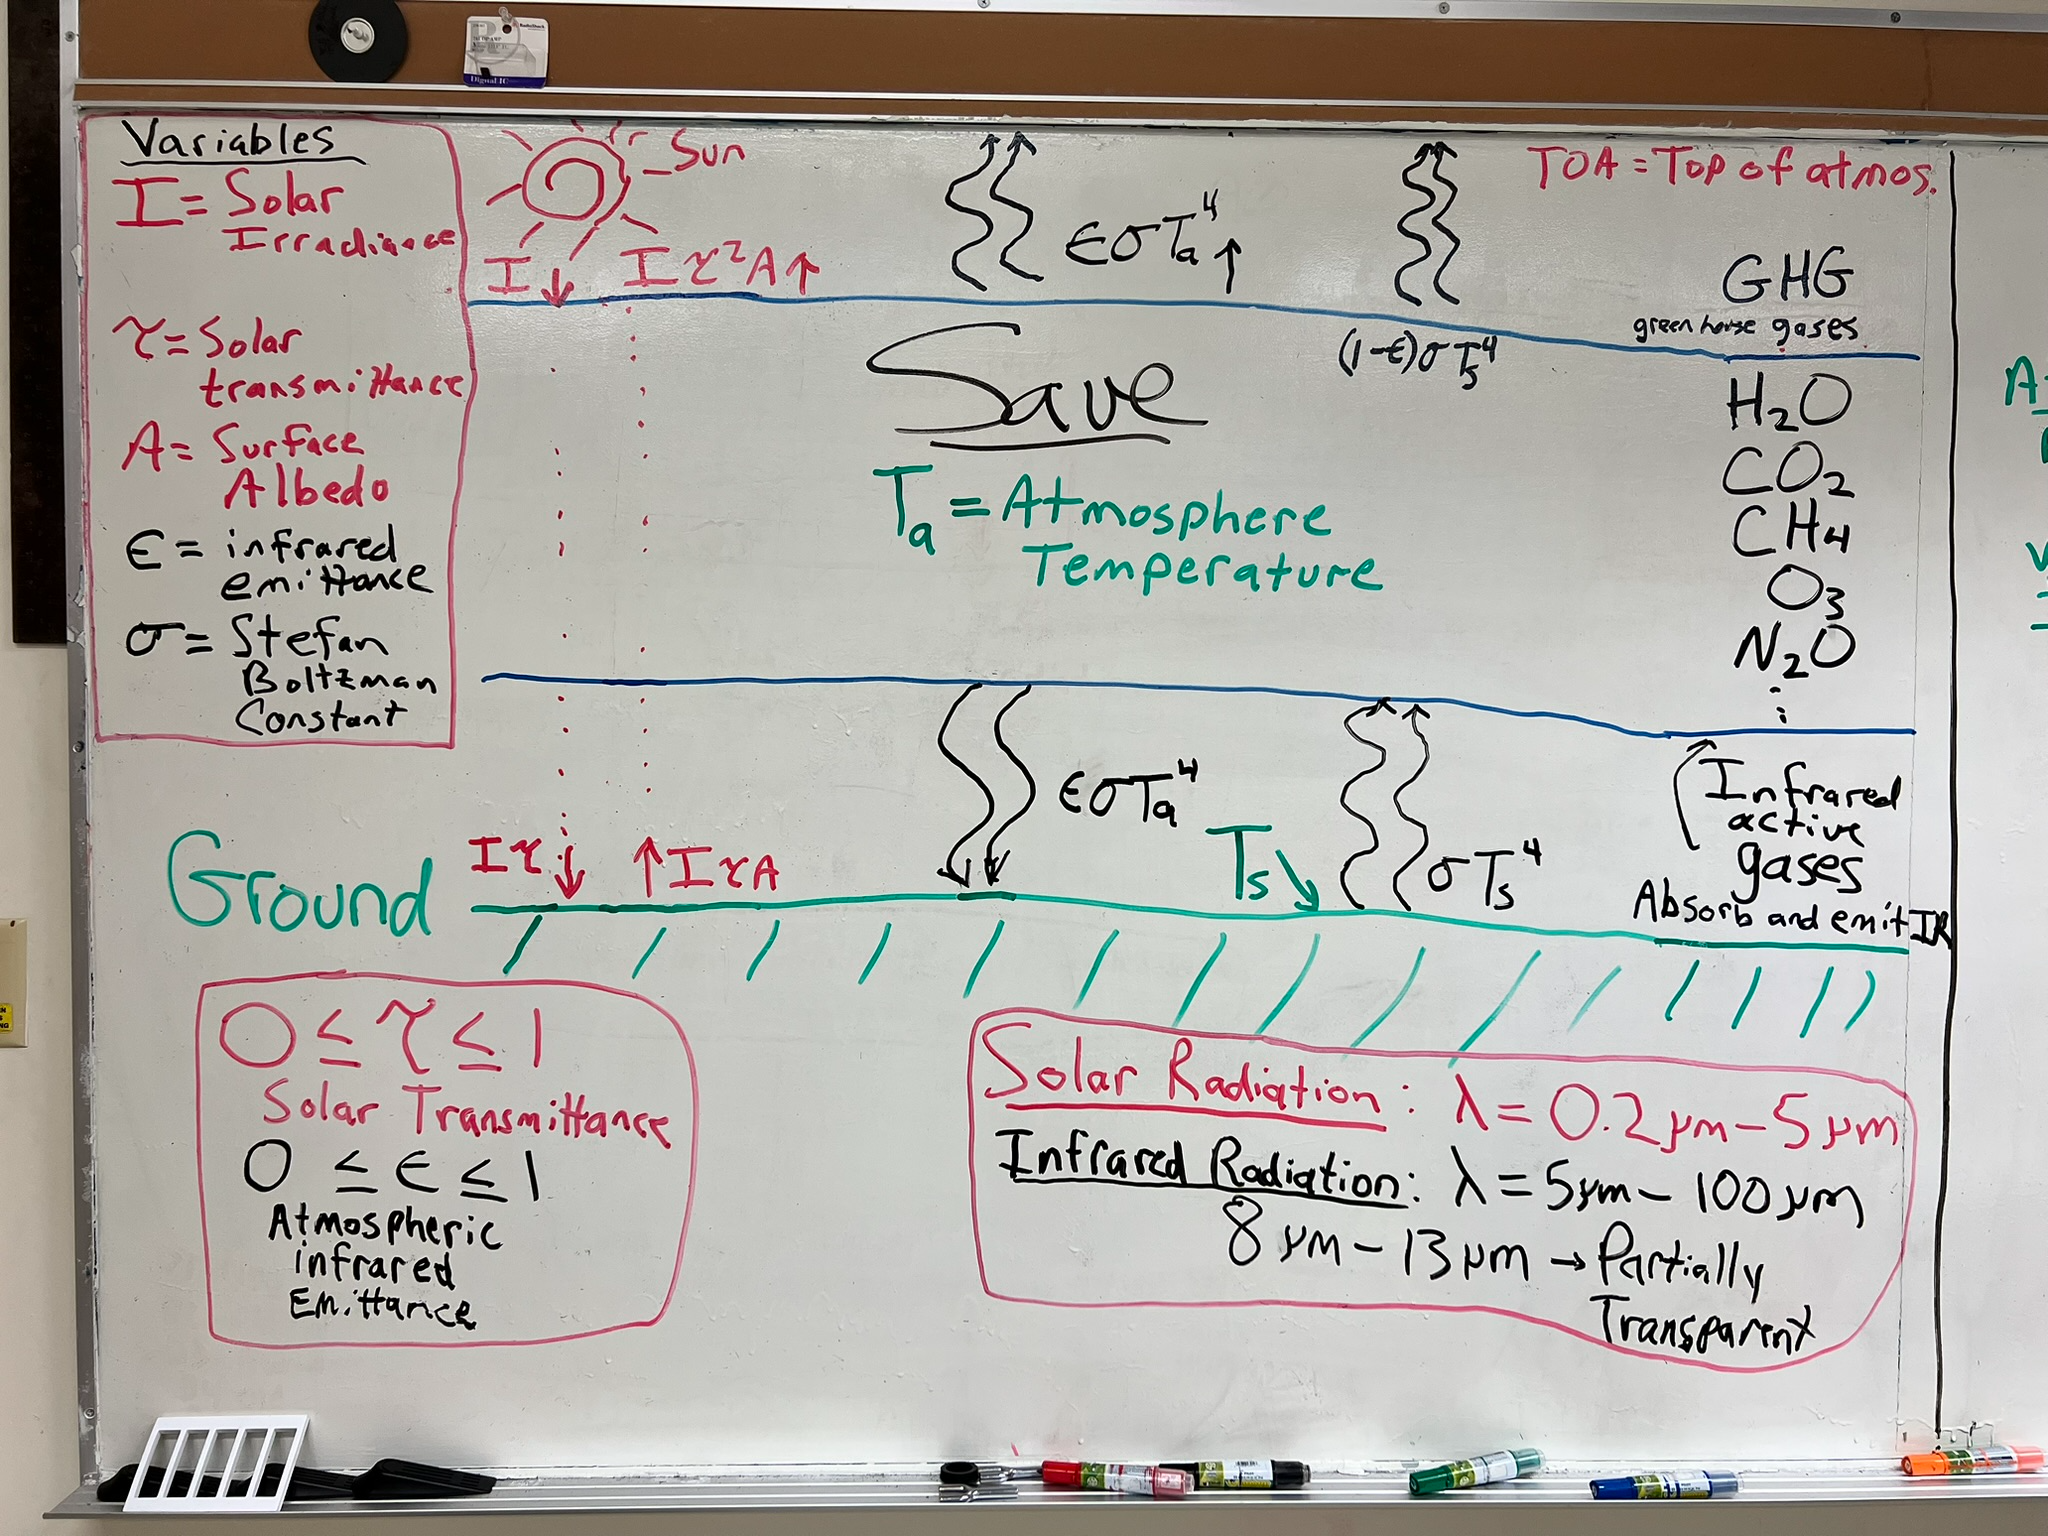 Variables
I = Solar
Irradiance
τ = Solar
transmittance
A = Surface
Albedo
ϵ = infrared
emittance
σ = Stefan
Boltzman
Constant
Sun
I ↓
Iτ²A ↑
ϵσTa⁴ ↑
TOA = Top of atmos.
GHG
green house gases
(1-ϵ)σTs⁴
Save
Ta = Atmosphere
Temperature
H₂O
CO₂
CH₄
O₃
N₂O
Ground
Iτ ↓
↑ IτA
ϵσTa⁴
Ts
σTs⁴
Infrared
active
gases
Absorb and emit IR
0 ≤ τ ≤ 1
Solar Transmittance
0 ≤ ϵ ≤ 1
Atmospheric
infrared
Emittance
Solar Radiation: λ = 0.2 μm – 5 μm
Infrared Radiation: λ = 5 μm – 100 μm
8 μm – 13 μm → Partially
Transparent
RadioShack
Digital IC